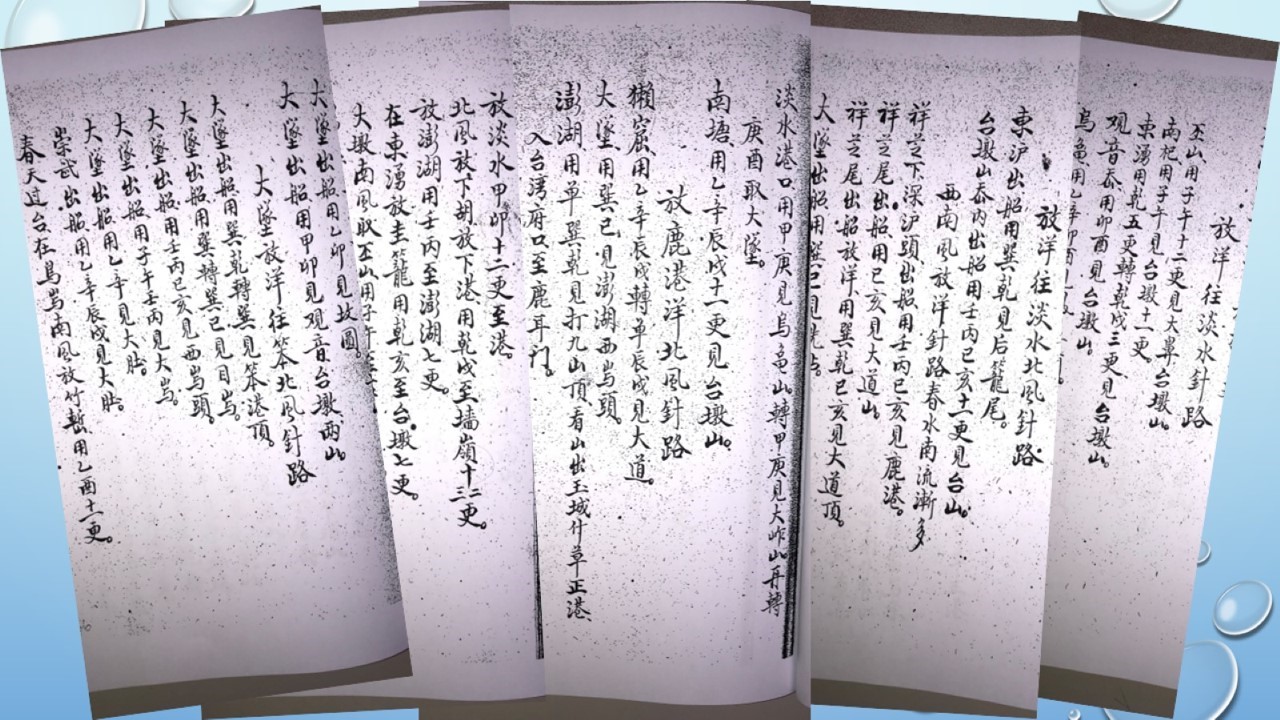 放洋往淡水針路
丕山用子午十二更見大鼻台墩山。
南杞用子午見台墩十一更
東湧用乾五更轉乾戌三更見台墩山。
观音泰用卯酉見台墩山。
烏龜用乙辛卯酉見
放洋往淡水北風針路
東沪出船用巽乾見后籠尾。
台墩山泰內出船用壬丙巳亥十一更見台山。
西南風放洋針路春水南流漸多
祥芝下深沪頭出船用壬丙巳亥見鹿港。
祥芝尾出船用巳亥見大道山。
祥芝尾出船放洋用巽乾巳亥見大道頂。
大墜出船用巽巳見
淡水港口用甲庚見烏龜山轉甲庚見大岞山再轉
庚酉取大墜。
南塘用乙辛辰戌十一更見台墩山。
放鹿港洋北風針路
獺窟用乙辛辰戌轉单辰戌見大道。
大墜用巽巳見澎湖西屿頭。
澎湖用单巽乾見打九山頂看山出玉域什草正港
入台湾府口至鹿耳门。
放淡水甲卯十二更至港。
北風放下胡放下港用乾戌至墙嶺十二三更。
放澎湖用壬丙至澎湖七更。
在東湧放圭籠用乾亥至台墩七更。
大墩南風取丕山用子午
大墜出船用乙卯見坟圓。
大墜出船用甲卯見观音台墩两山。
大墜放洋往笨北風針路
大墜出船用巽乾轉巽見笨港頂。
大墜出船用巽轉巽巳見目屿。
大墜出船用壬丙巳亥見西屿頭。
大墜出船用子午壬丙見大屿。
大墜出船用乙辛見大肚。
崇武出船用乙辛辰戌見大肚。
春天过台在烏屿南風放竹塹用乙酉十一更。